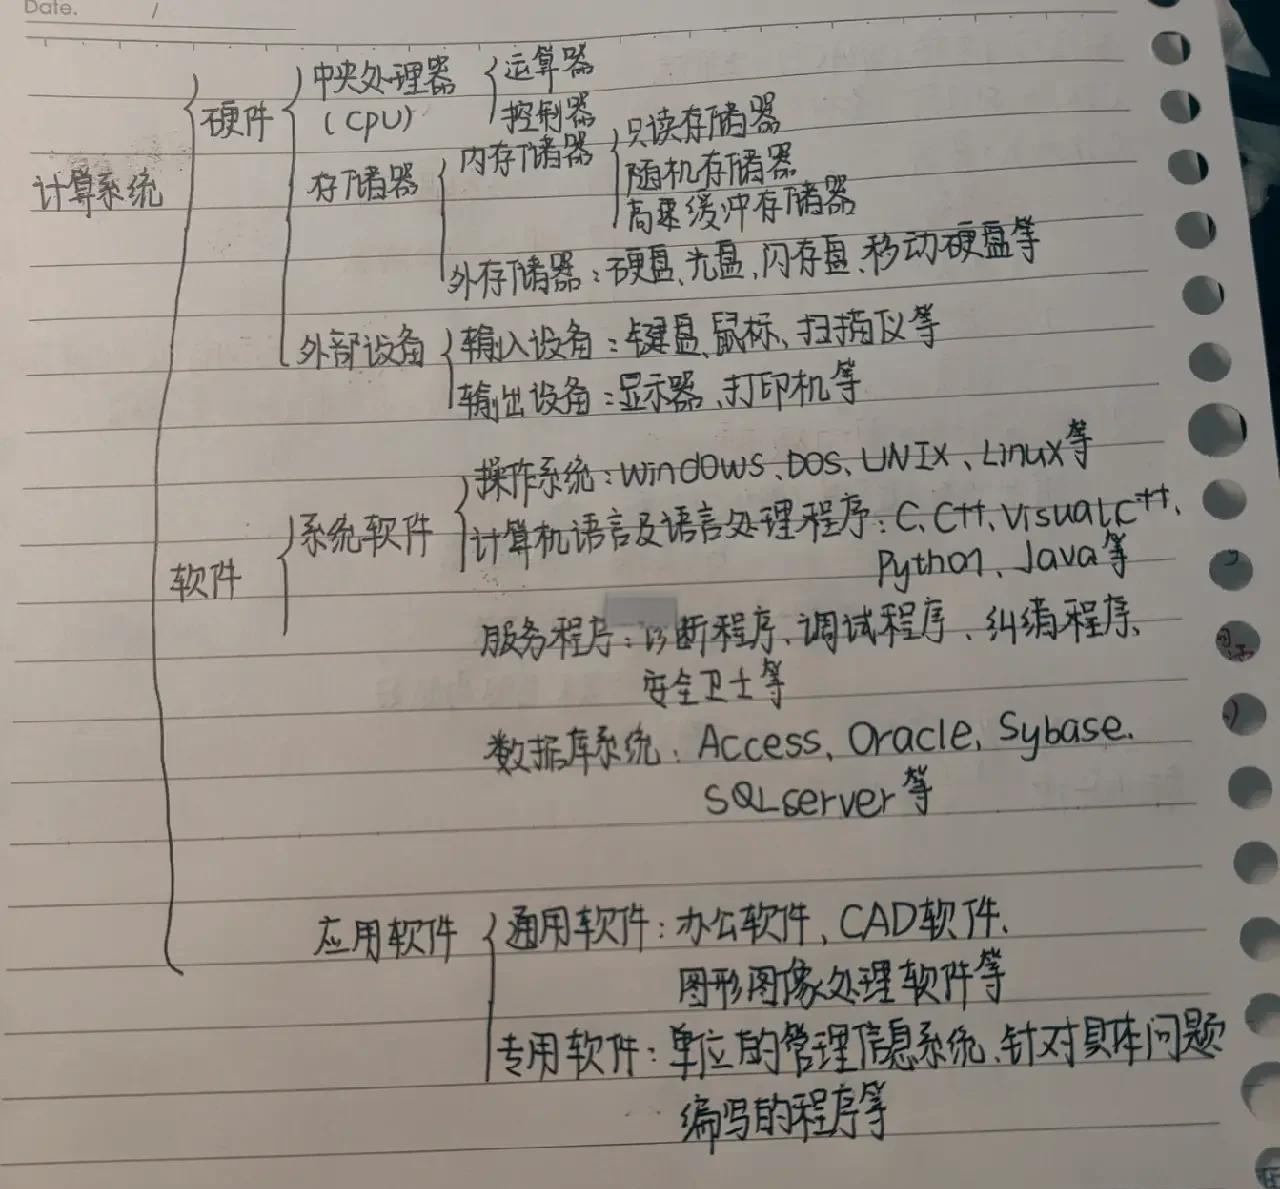 Date. /
中央处理器 运算器
硬件 (CPU) 控制器
计算系统 存储器 内存储器 只读存储器
随机存储器
高速缓冲存储器
外存储器：硬盘、光盘、闪存盘、移动硬盘等
外部设备 输入设备：键盘、鼠标、扫描仪等
输出设备：显示器、打印机等
操作系统：Windows、DOS、UNIX、Linux等
系统软件 计算机语言及语言处理程序：C、C++、Visual C++、
软件 Python、Java等
服务程序：诊断程序、调试程序、纠错程序、
安全卫士等
数据库系统：Access、Oracle、Sybase、
SQLserver等
应用软件 通用软件：办公软件、CAD软件、
图形图像处理软件等
专用软件：单位的管理信息系统、针对具体问题
编写的程序等